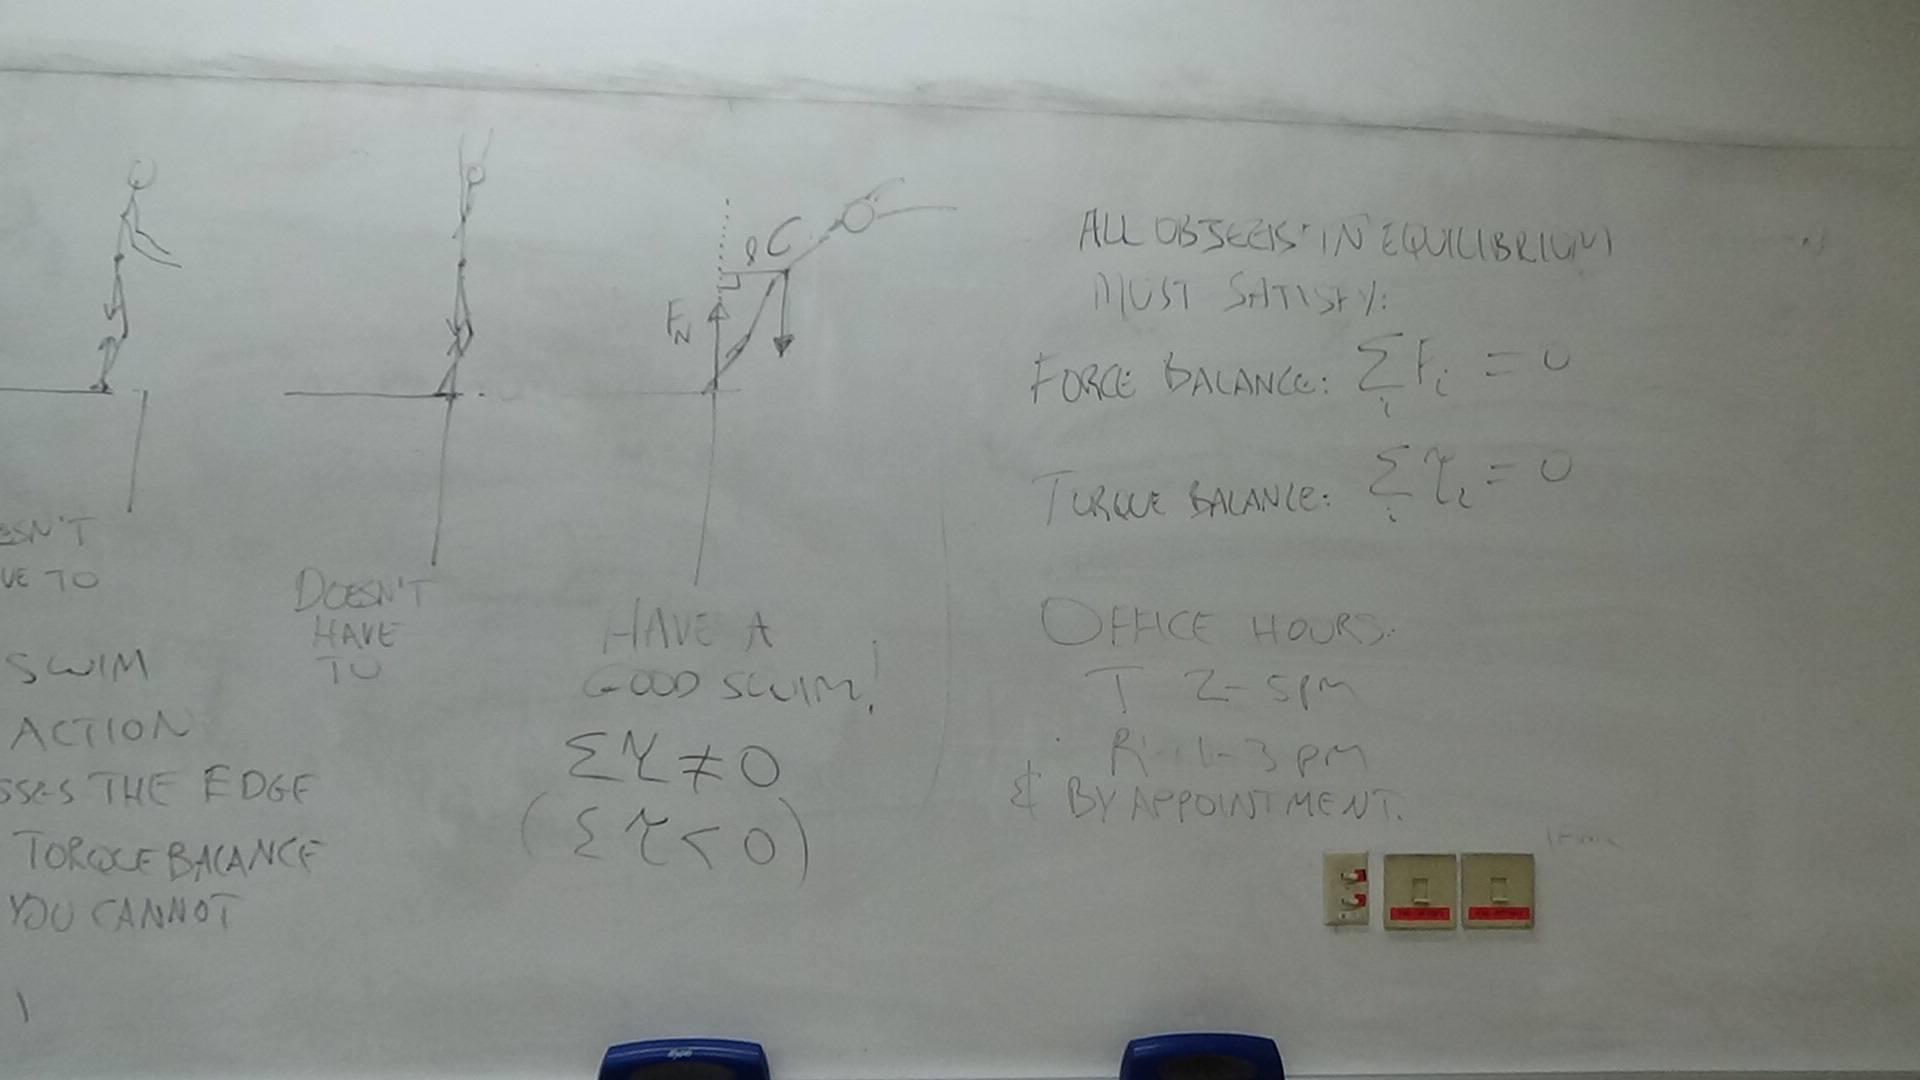 F_N
l
C
DOESN'T
HAVE
TO
SWIM
ACTION
THE EDGE
TORQUE BALANCE
YOU CANNOT
HAVE A
GOOD SWIM!
Στ ≠ 0
(Στ < 0)
ALL OBJECTS IN EQUILIBRIUM
MUST SATISFY:
FORCE BALANCE: Σ_i F_i = 0
TORQUE BALANCE: Σ_i τ_i = 0
OFFICE HOURS:
T 2-5pm
R 1-3pm
& BY APPOINTMENT.